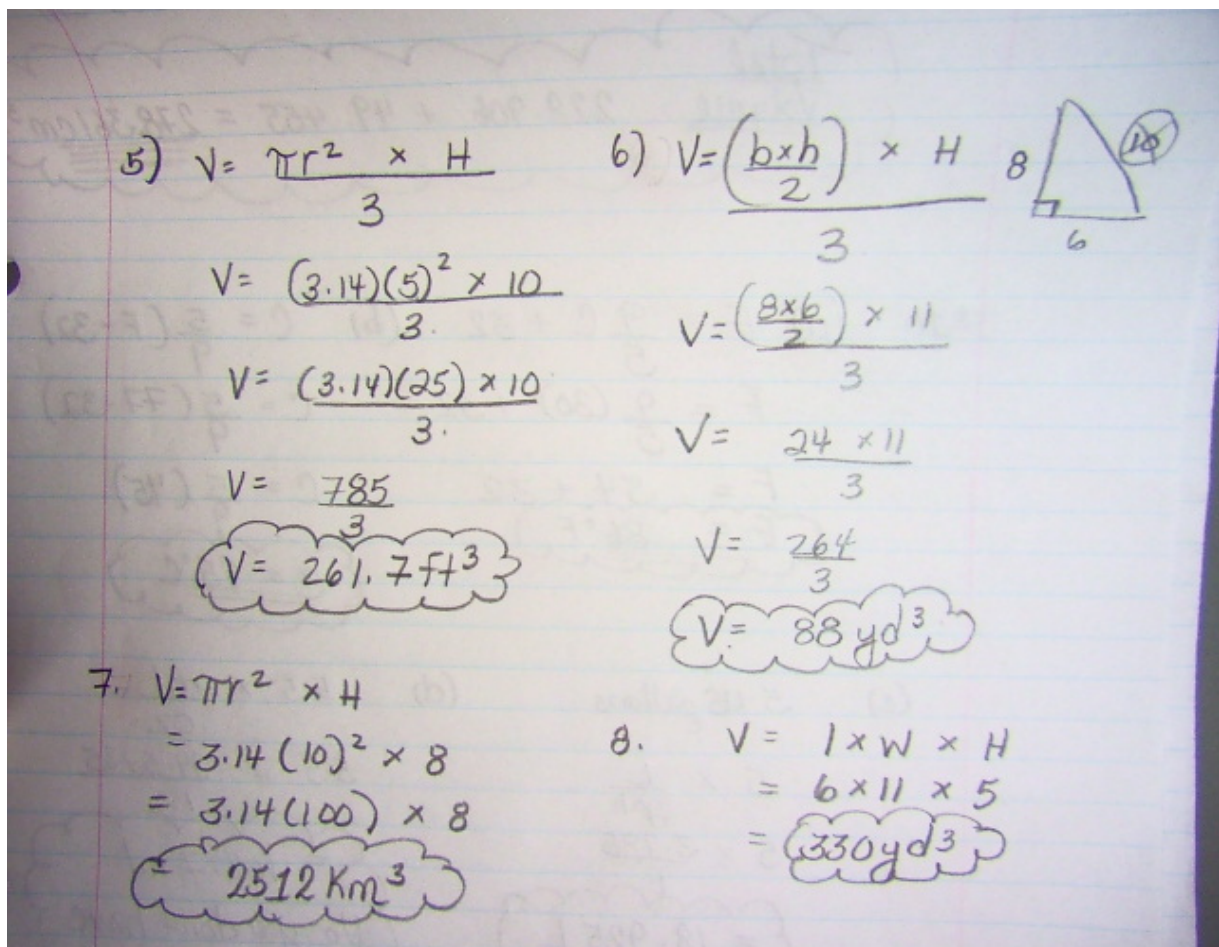 5) V= πr² × H
3
V= (3.14)(5)² × 10
3.
V= (3.14)(25) × 10
3.
V= 785
3
V= 261.7 ft³
6) V= (b×h) × H
2
3
8
10
6
V= (8×6) × 11
2
3
V= 24 × 11
3
V= 264
3
V= 88 yd³
7. V= πr² × H
= 3.14 (10)² × 8
= 3.14 (100) × 8
= 2512 Km³
8. V = l × W × H
= 6 × 11 × 5
= 330 yd³